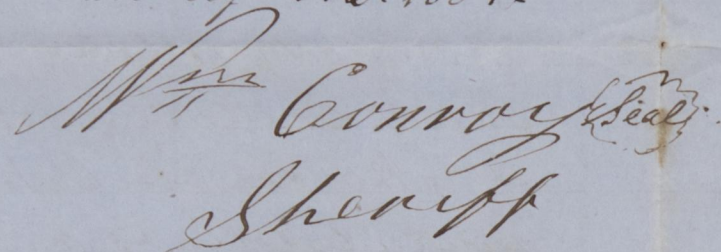 Wm Conroy (Seal)
Sheriff